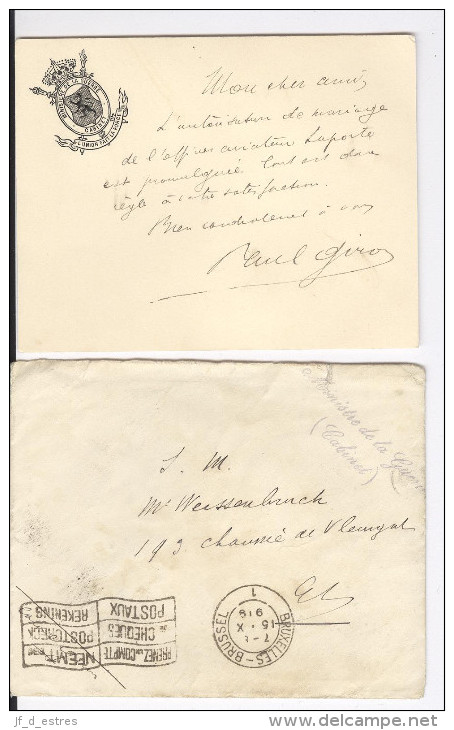 MINISTÈRE DE LA GUERRE
CABINET
L'UNION FAIT LA FORCE
Mon cher ami,
L'autorisation de mariage
de l'officier aviateur Laporte
est promulguée. Tout est donc
réglé à votre satisfaction.
Bien cordialement à vous
Paul Giro
Ministre de la Guerre
(Cabinet)
S. M.
Mr Weissenbruch
193 chaussée de Vleurgat
PRENEZ UN COMPTE
DE CHÈQUES
POSTAUX
NEEMT EEN
POSTCHECK
REKENING
BRUXELLES - BRUSSEL
15 X
919
1
jf_d_estres
delcampe.net